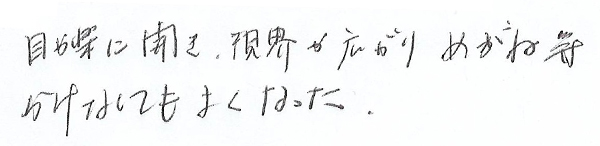 目が楽に開き、視界が広がり めがね等
かけなくてもよくなった.